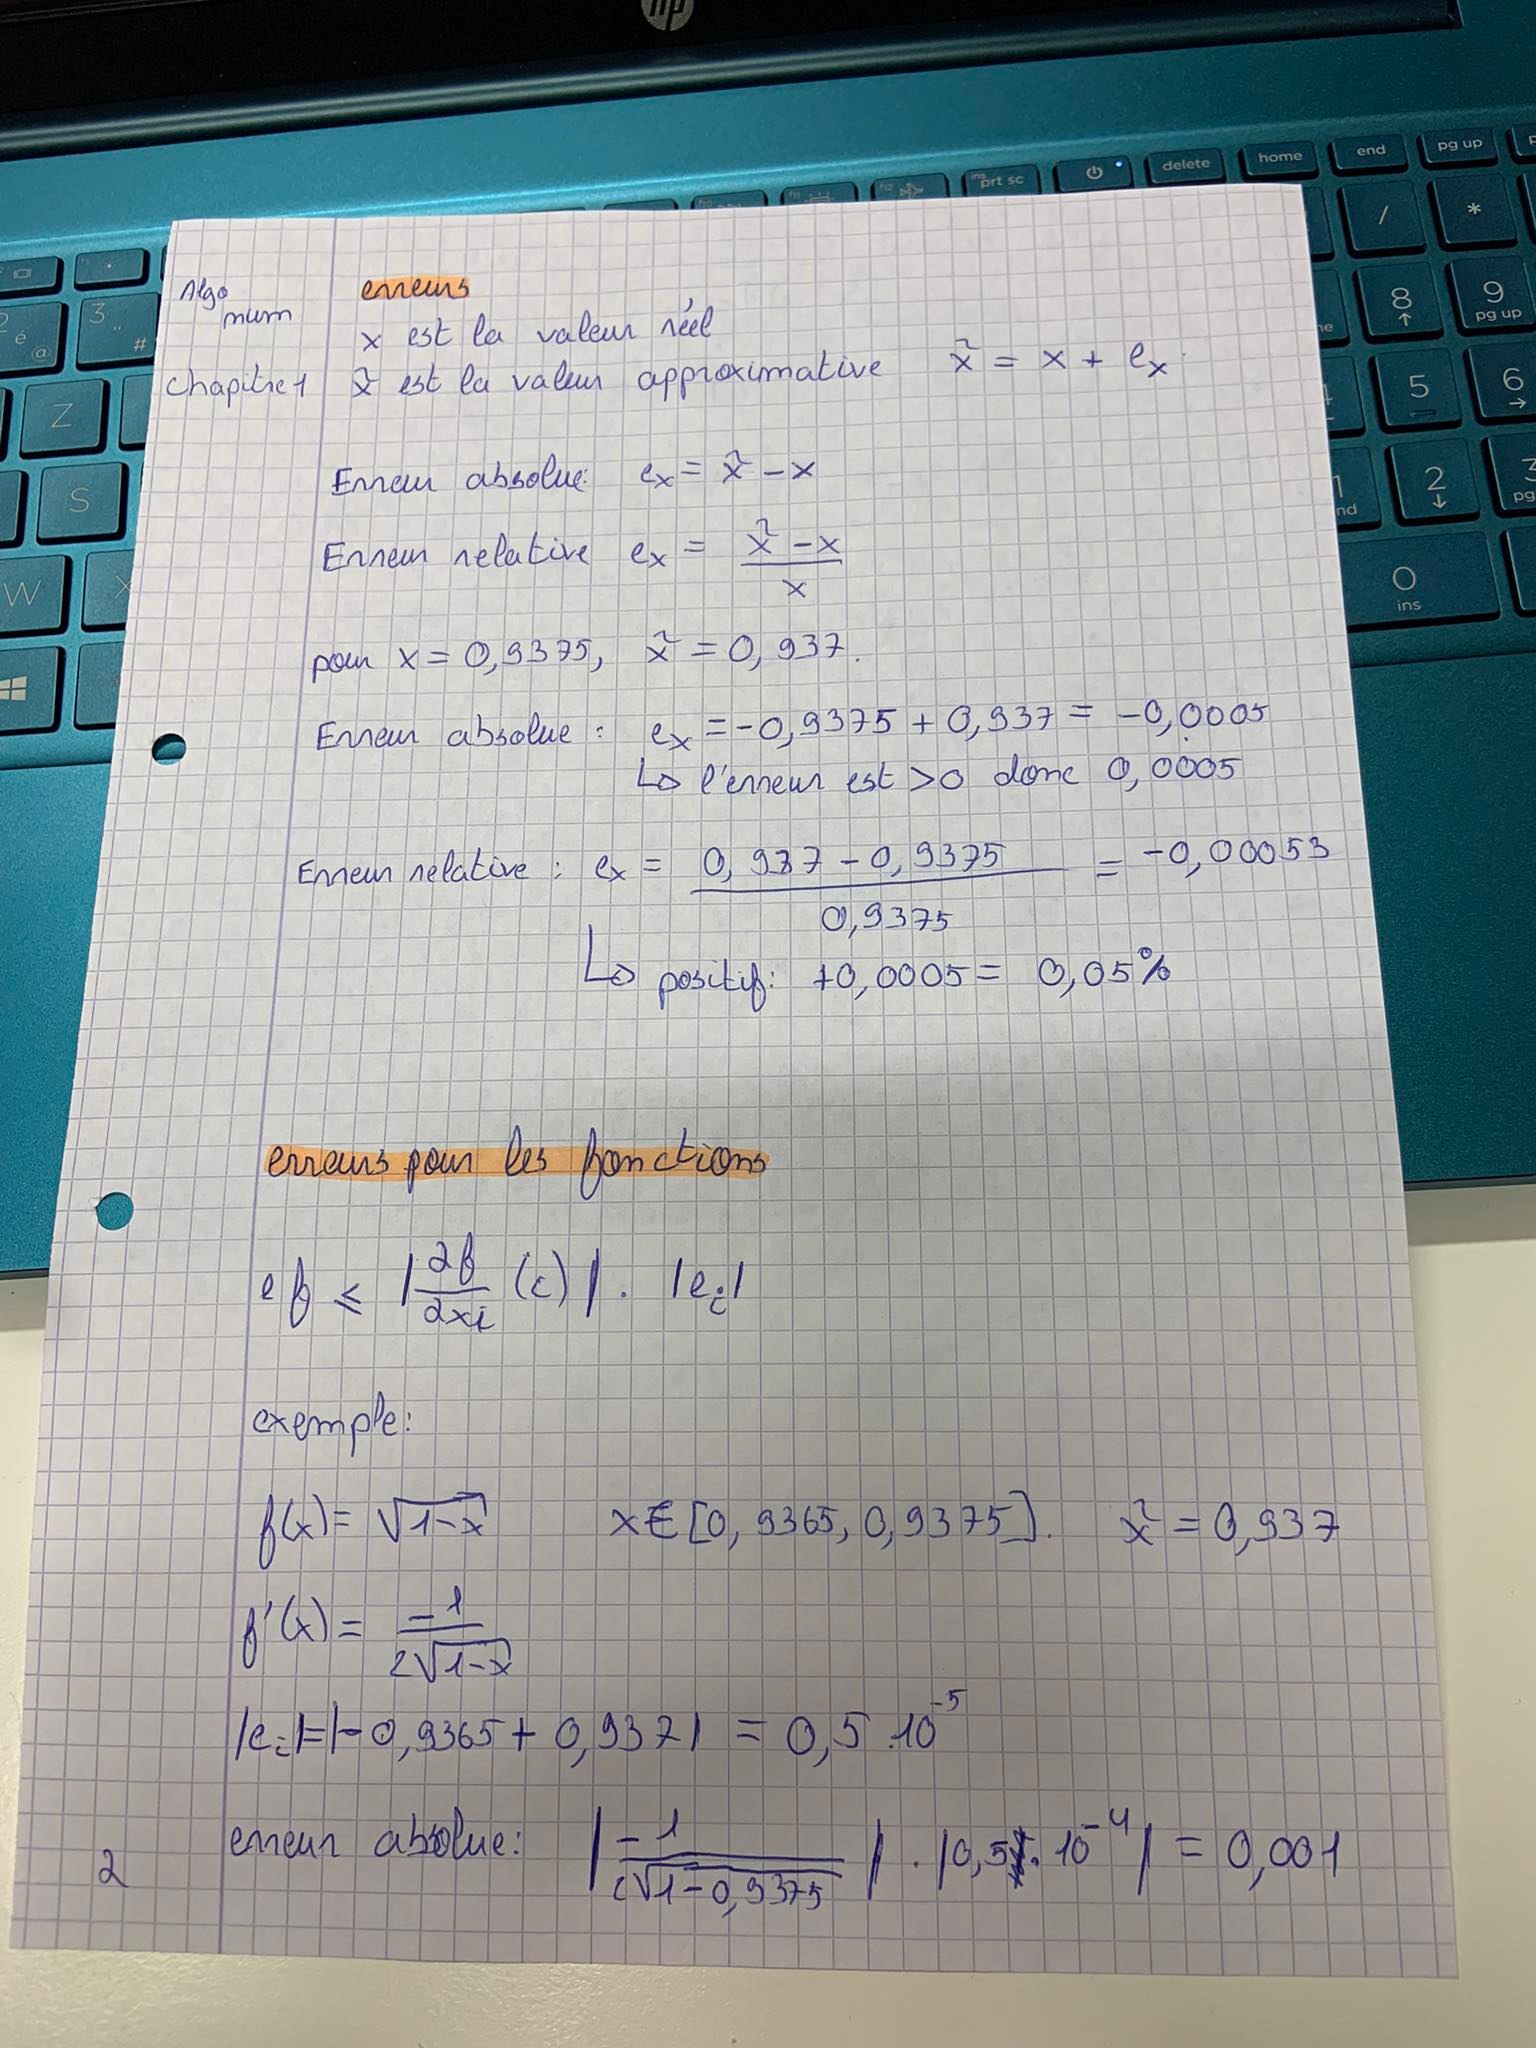 hp
prt sc
delete
home
end
pg up
Algo
num
Chapitre 1
erreurs
x est la valeur réel
x̃ est la valeur approximative x̃ = x + ex.
Erreur absolue: ex = x̃ - x
Erreur relative ex = x̃ - x / x
pour x = 0,9375, x̃ = 0,937.
Erreur absolue : ex = -0,9375 + 0,937 = -0,0005
↳ l'erreur est >0 donc 0,0005
Erreur relative : ex = 0,937 - 0,9375 / 0,9375 = -0,00053
↳ positif: +0,0005 = 0,05%
erreurs pour les fonctions
ef ≤ |∂f/∂xi (c)| . |ei|
exemple:
f(x) = √1-x x ∈ [0,9365, 0,9375]. x̃ = 0,937
f'(x) = -1 / 2√1-x
|ei| = |-0,9365 + 0,937| = 0,5.10⁻⁵
erreur absolue: |-1 / 2√1-0,9375| . |0,5.10⁻⁴| = 0,001
2
/
*
8
9
pg up
5
6
2
3
0
ins
Z
S
W
X
3
#
é
@